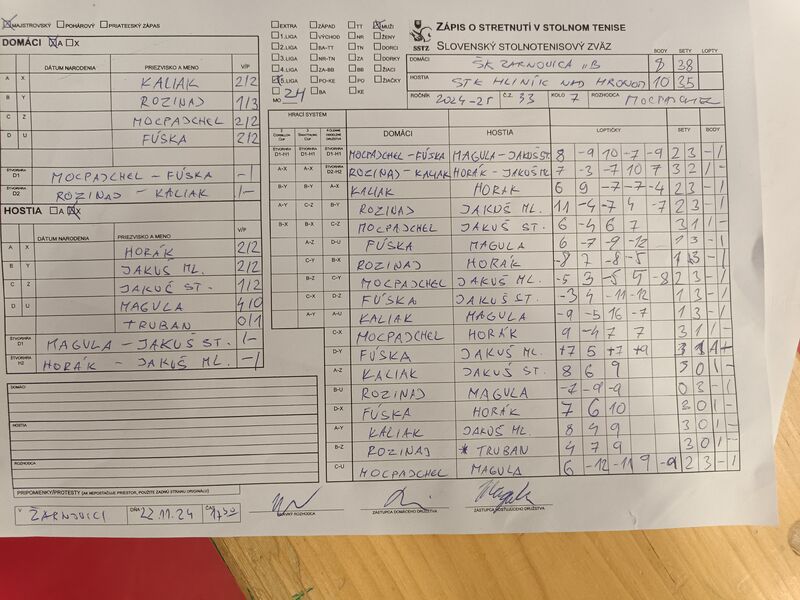 MAJSTROVSKÝ POHÁROVÝ PRIATEĽSKÝ ZÁPAS
DOMÁCI A X
DÁTUM NARODENIA PRIEZVISKO A MENO V/P
A X KALIAK 2/2
B Y ROZINAJ 1/3
C Z MOCPAJCHEL 2/2
D U FÚSKA 2/2
ŠTVORHRA D1 MOCPAJCHEL - FÚSKA -/
ŠTVORHRA D2 ROZINAJ - KALIAK /-
HOSTIA A X
DÁTUM NARODENIA PRIEZVISKO A MENO V/P
A X HORÁK 2/2
B Y JAKUŠ ML. 2/2
C Z JAKUŠ ST. 1/2
D U MAGULA 4/0
TRUBAN 0/1
ŠTVORHRA MAGULA - JAKUŠ ST. /-
ŠTVORHRA H2 HORÁK - JAKUŠ ML. -/
DOMÁCI
HOSTIA
ROZHODCA
PRIPOMIENKY/PROTESTY (AK NEPOSTAČUJE PRIESTOR, POUŽITE ZADNÚ STRANU ORIGINÁLU)
V ŽARNOVICI DŇA 22.11.24 ČAS 17:30
EXTRA ZÁPAD TT MUŽI
1.LIGA VÝCHOD NR ŽENY
2.LIGA BA-TT TN DORCI
3.LIGA NR-TN ZA DORKY
4.LIGA ZA-BB BB ŽIACI
5.LIGA PO-KE PO ŽIAČKY
MO 24 BA KE
SSTZ
ZÁPIS O STRETNUTÍ V STOLNOM TENISE
SLOVENSKÝ STOLNOTENISOVÝ ZVÄZ
BODY SETY LOPTY
DOMÁCI ŠK ŽARNOVICA "B 8 38
HOSTIA STK HLINÍK NAD HRONOM 10 35
ROČNÍK 2024-25 Č.Z. 33 KOLO 7 ROZHODCA MOCPAJCHEL
HRACÍ SYSTÉM DOMÁCI HOSTIA LOPTIČKY SETY BODY
ŠTVORHRA D1-H1 ŠTVORHRA D1-H1 ŠTVORHRA D1-H1 MOCPAJCHEL-FÚSKA MAGULA-JAKUŠ ST. 8 -9 10 -7 -9 2 3 - 1
A-X A-X ŠTVORHRA D2-H2 ROZINAJ-KALIAK HORÁK-JAKUŠ ML 7 -3 -7 10 7 3 2 1 -
B-Y B-Y A-X KALIAK HORÁK 6 9 -7 -7 -4 2 3 - 1
A-Y C-Z B-Y ROZINAJ JAKUŠ ML. 11 -4 -7 4 -7 2 3 - 1
B-X B-X C-Z MOCPAJCHEL JAKUŠ ST. 6 -4 6 7 3 1 1 -
A-Z D-U FÚSKA MAGULA 6 -7 -9 -12 1 3 - 1
C-Y B-X ROZINAJ HORÁK -8 7 -8 -5 1 3 - 1
B-Z C-Y MOCPAJCHEL JAKUŠ ML. -5 3 -5 9 -8 2 3 - 1
C-X D-Z FÚSKA JAKUŠ ST. -3 4 -11 -12 1 3 - 1
A-Y A-U KALIAK MAGULA -9 -5 16 -7 1 3 - 1
C-X MOCPAJCHEL HORÁK 9 -4 7 7 3 1 1 -
D-Y FÚSKA JAKUŠ ML. +7 5 +7 +9
A-Z KALIAK JAKUŠ ST. 8 6 9 3 0 1 -
B-U ROZINAJ MAGULA -7 -9 -9 0 3 - 1
D-X FÚSKA HORÁK 7 6 10 3 0 1 -
A-Y KALIAK JAKUŠ ML. 8 4 9 3 0 1 -
B-Z ROZINAJ * TRUBAN 4 7 9 3 0 1 -
C-U MOCPAJCHEL MAGULA 6 -12 -11 9 -9 2 3 - 1
HLAVNÝ ROZHODCA ZÁSTUPCA DOMÁCEHO DRUŽSTVA ZÁSTUPCA HOSŤUJÚCEHO DRUŽSTVA